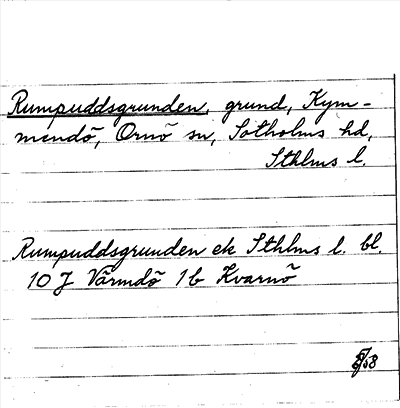 Rumpuddsgrunden, grund, Kym-
mendö, Ornö sn, Sotholms hd,
Sthlms l.
Rumpuddsgrunden ek Sthlms l. bl.
10 J Värmdö 1b Kvarnö